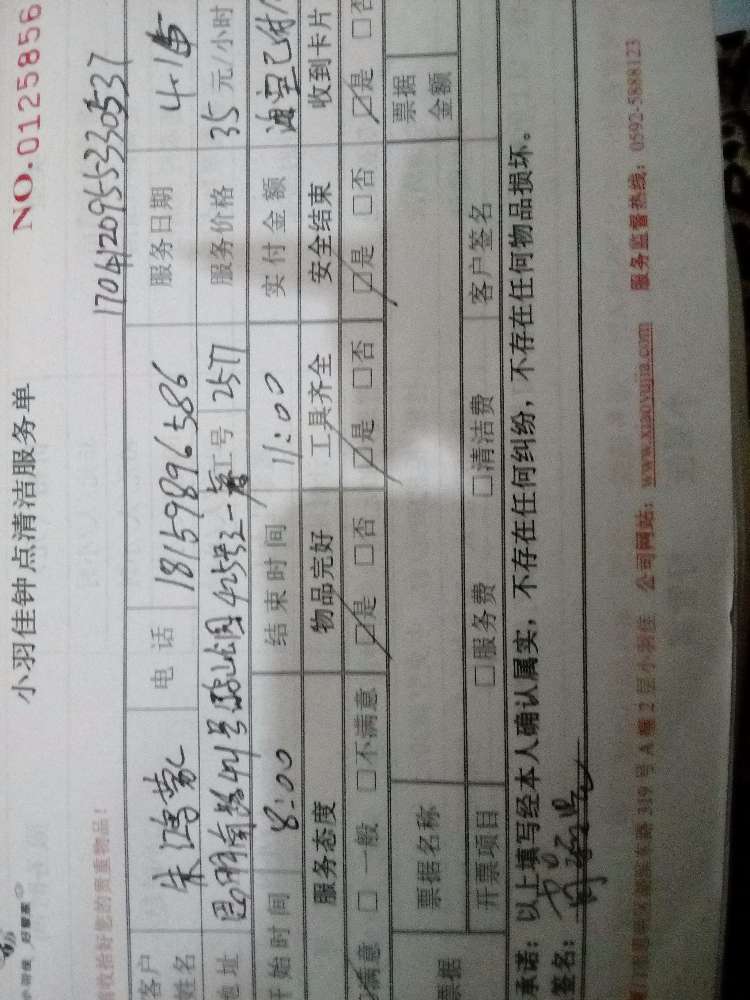 小羽佳 好管家
小羽佳钟点清洁服务单 NO.0125856
收拾好您的贵重物品!
1704120955330537
客户姓名 朱鸿蒙 电话 18159896586 服务日期 4.15
地址 工号 2577 服务价格 35元/小时
开始时间 8:00 结束时间 11:00 实付金额
服务态度 物品完好 工具齐全 安全结束 收到卡片
满意 □一般 □不满意 ☑是 □否 ☑是 □否 ☑是 □否 ☑是 □否
票据 票据名称 票据金额
开票项目 □服务费 □清洁费 客户签名
承诺:以上填写经本人确认属实,不存在任何纠纷,不存在任何物品损坏。
签名:
319号A幢2层小羽佳 公司网站:www.xiaoyujia.com 服务监督热线:0592-5888123